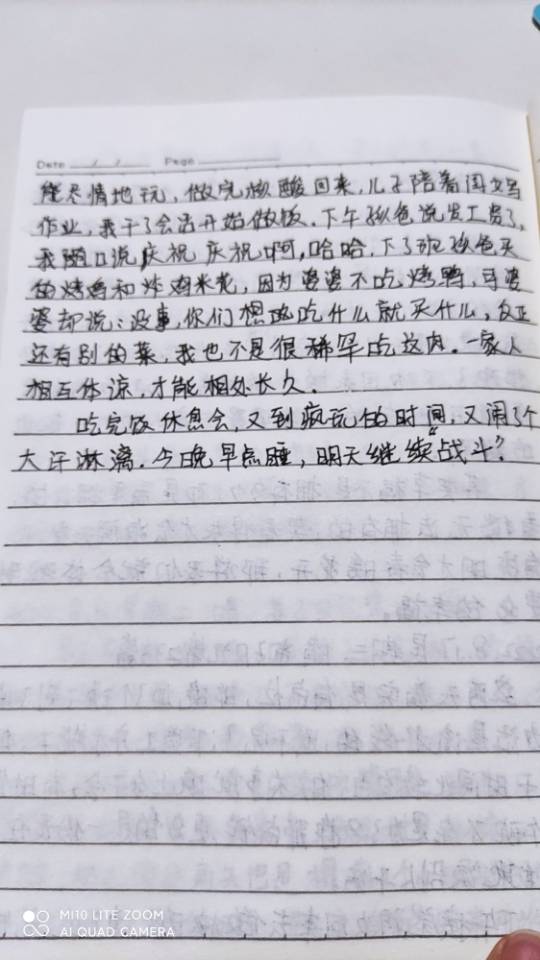 Date / / Page
能尽情地玩，做完核酸回来，儿子陪着闺女写
作业，我干了会活开始做饭。下午孩爸说发工资了，
我随口说庆祝庆祝啊，哈哈，下了班孩爸买
的烤鸡和炸鸡米花，因为婆婆不吃烤鸭，可婆
婆却说：没事，你们想吃什么就买什么，反正
还有别的菜，我也不是很稀罕吃这肉。一家人
相互体谅，才能相处长久。
吃完饭休息会，又到疯玩的时间，又闹了个
大汗淋漓。今晚早点睡，明天继续战斗？
MI10 LITE ZOOM
AI QUAD CAMERA